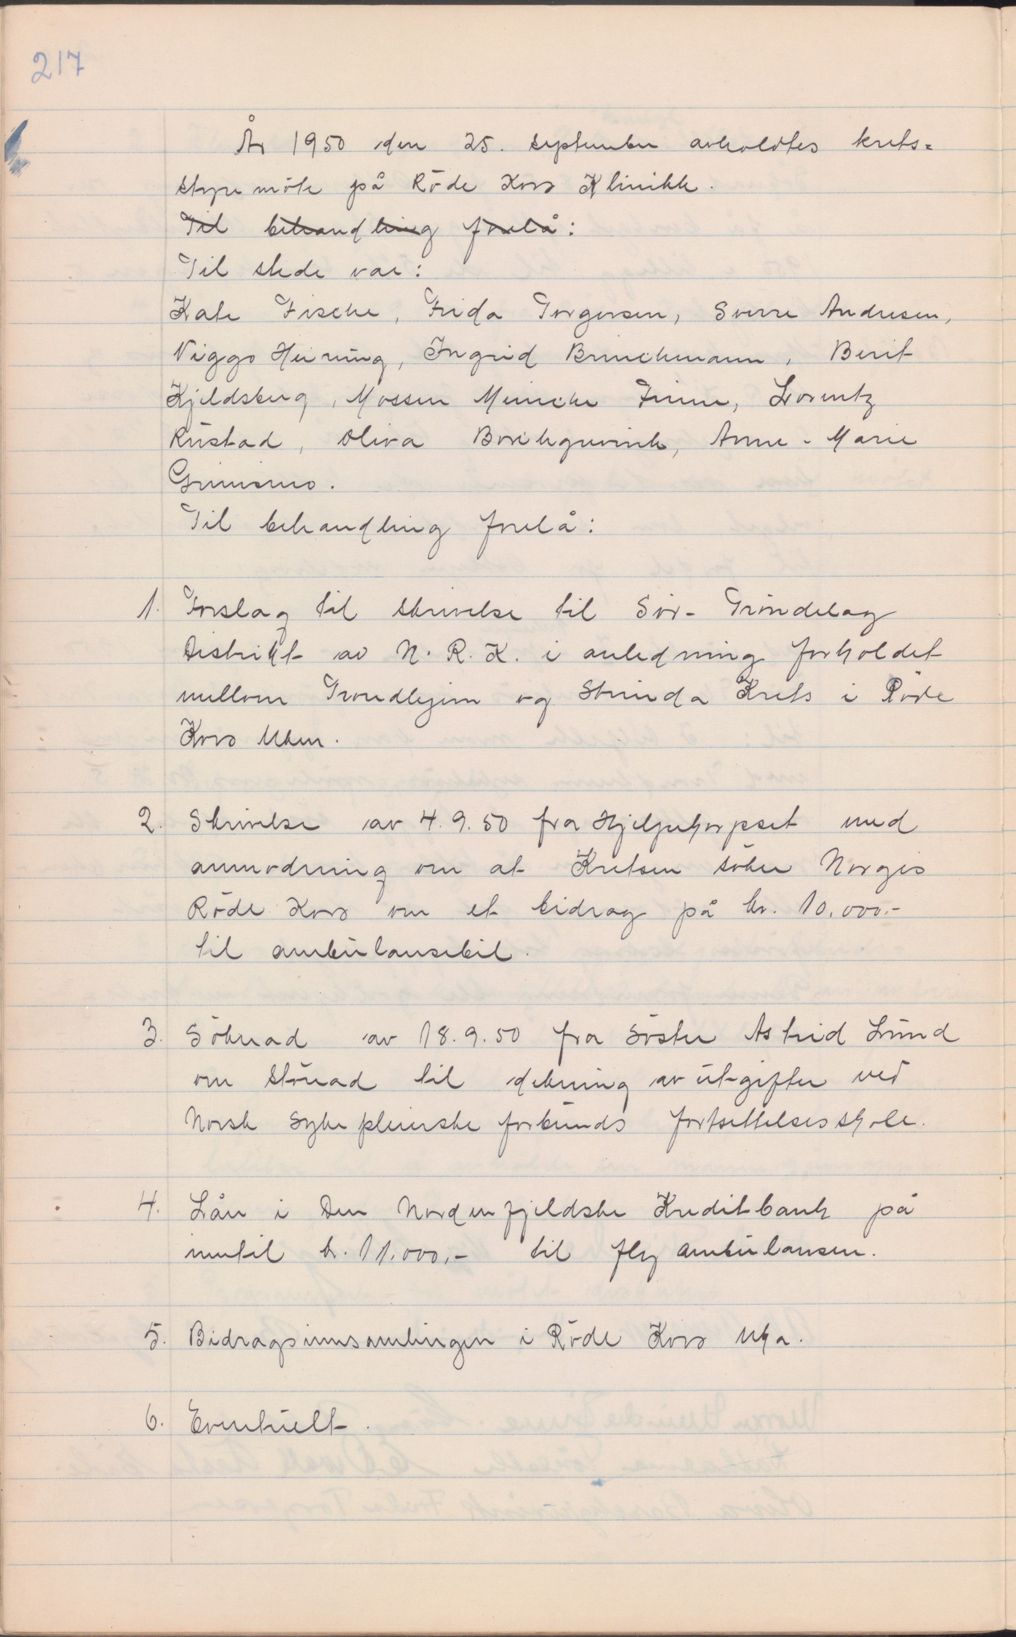 217
År 1950 den 25. september avholdtes krets=
styremöte på Röde Kors Klinikk.
Til behandling forelå:
Til stede var:
Kate Fischer, Frida Torgersen, Sverre Andresen,
Viggo Heining, Ingrid Brinchmann, Berit
Kjeldsberg, Mossen Meincke Finne, Lorentz
Rustad, Oliva Borchgrevink, Anne-Marie
Grimsmo.
Til behandling forelå:
1. Forslag til skrivelse til Sör-Tröndelag
Distrikt av N.R.K. i anledning forholdet
mellom Trondhjem og Strinda Krets i Röde
Kors Uken.
2. Skrivelse av 4.9.50 fra Hjelpekorpset med
anmodning om at Kretsen söker Norges
Röde Kors om et bidrag på kr. 10.000.-
til ambulansebil.
3. Söknad av 18.9.50 fra Söster Astrid Lund
om stönad til dekning av utgifter ved
Norsk Sykepleierske forbunds fortsettelsesskole.
4. Lån i Den Nordenfjeldske Kreditbank på
inntil kr. 11.000,- til flyambulansen.
5. Bidragsinnsamlingen i Röde Kors Uka.
6. Eventuelt.